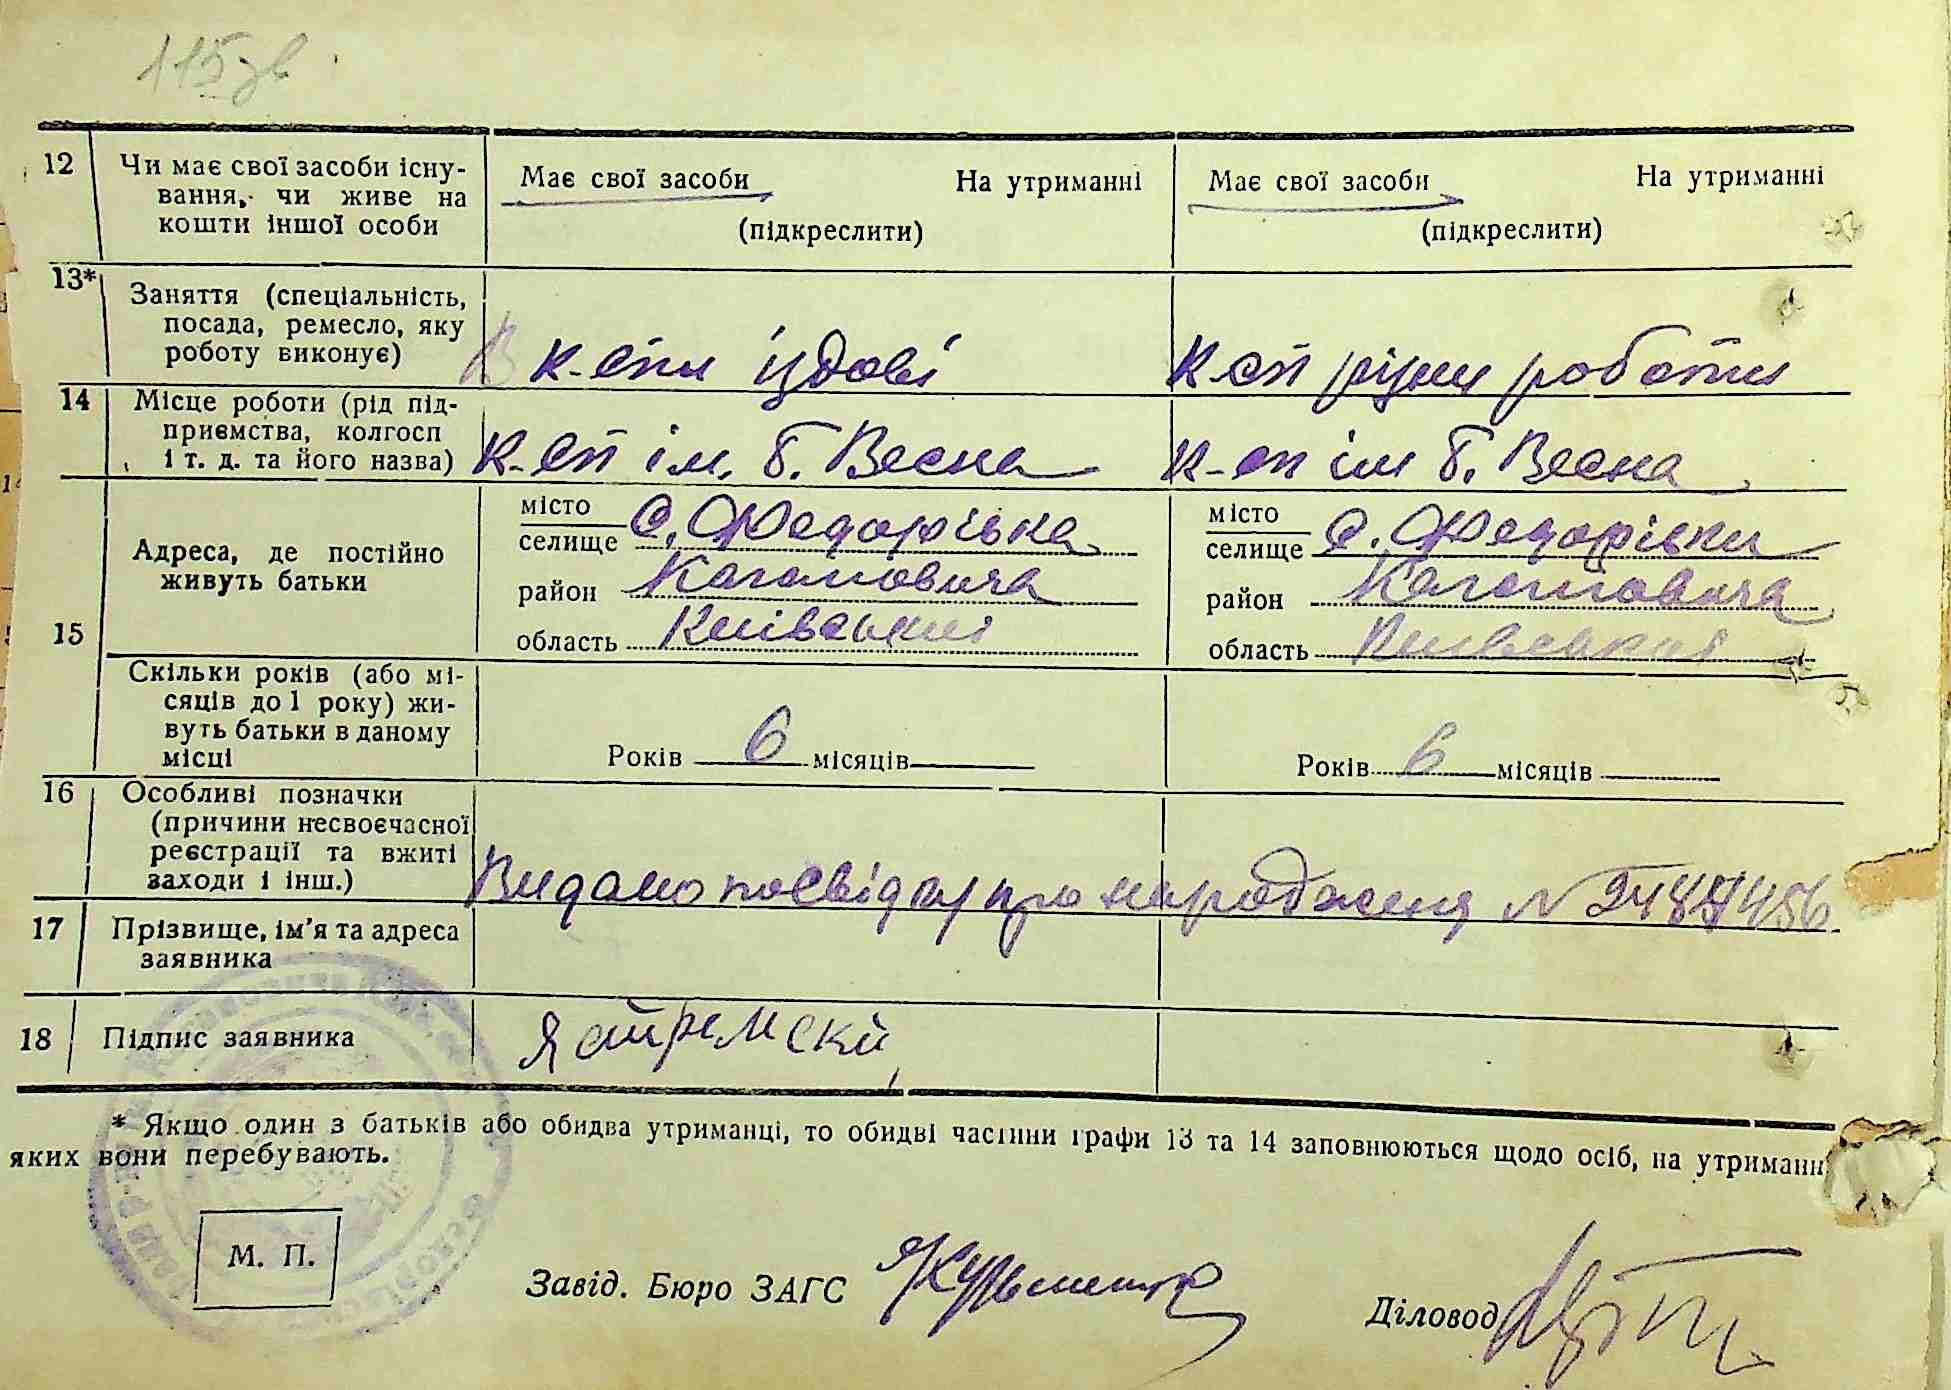 115 зв
12 Чи має свої засоби існу- Має свої засоби На утриманні Має свої засоби На утриманні
вання, чи живе на
кошти іншої особи (підкреслити) (підкреслити)
13* Заняття (спеціальність,
посада, ремесло, яку
роботу виконує) В к-спі їздові К-сп різни роботи
14 Місце роботи (рід під-
приємства, колгосп
і т. д. та його назва) К-сп ім. Б. Весна К-сп ім Б. Весна
15 Адреса, де постійно
живуть батьки
місто
селище С. Федорівка
район Кагановича
область Київський
місто
селище С. Федорівки
район Кагановича
область Київський
Скільки років (або мі-
сяців до 1 року) жи-
вуть батьки в даному
місці Років 6 місяців Років 6 місяців
16 Особливі позначки
(причини несвоєчасної
реєстрації та вжиті
заходи і інш.) Видано посвідку про народження №
17 Прізвище, ім'я та адреса
заявника
18 Підпис заявника Ястремский
* Якщо один з батьків або обидва утриманці, то обидві частини графи 13 та 14 заповнюються щодо осіб, на утриманні
яких вони перебувають.
М. П.
Завід. Бюро ЗАГС
Діловод